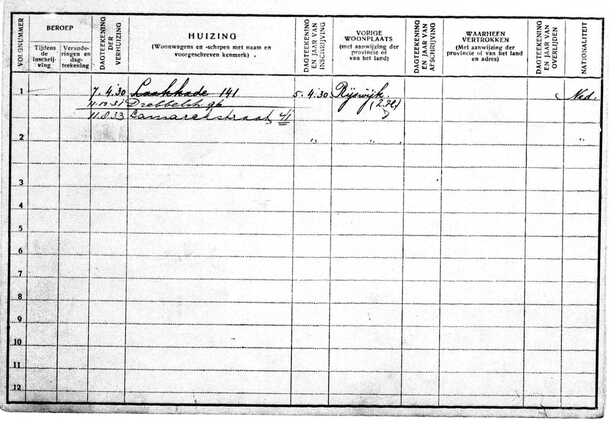 VOLGNUMMER
BEROEP
Tijdens de inschrijving
Veranderingen en dagteekening
DAGTEEKENING DER VERHUIZING
HUIZING
(Woonwagens en -schepen met naam en voorgeschreven kenmerk)
DAGTEEKENING EN JAAR VAN INSCHRIJVING
VORIGE WOONPLAATS
(met aanwijzing der provincie of van het land)
DAGTEEKENING EN JAAR VAN AFSCHRIJVING
WAARHEEN VERTROKKEN
(Met aanwijzing der provincie of van het land en adres)
DAGTEEKENING EN JAAR VAN OVERLIJDEN
NATIONALITEIT
1 7.4.'30 Laakkade 141 5.4.30 Rijswijk. Ned.
11.10.31 Drebbelstr (Z.H.)
11.8.33 Camerastraat
2 " "
3
4
5
6
7
8
9
10
11
12